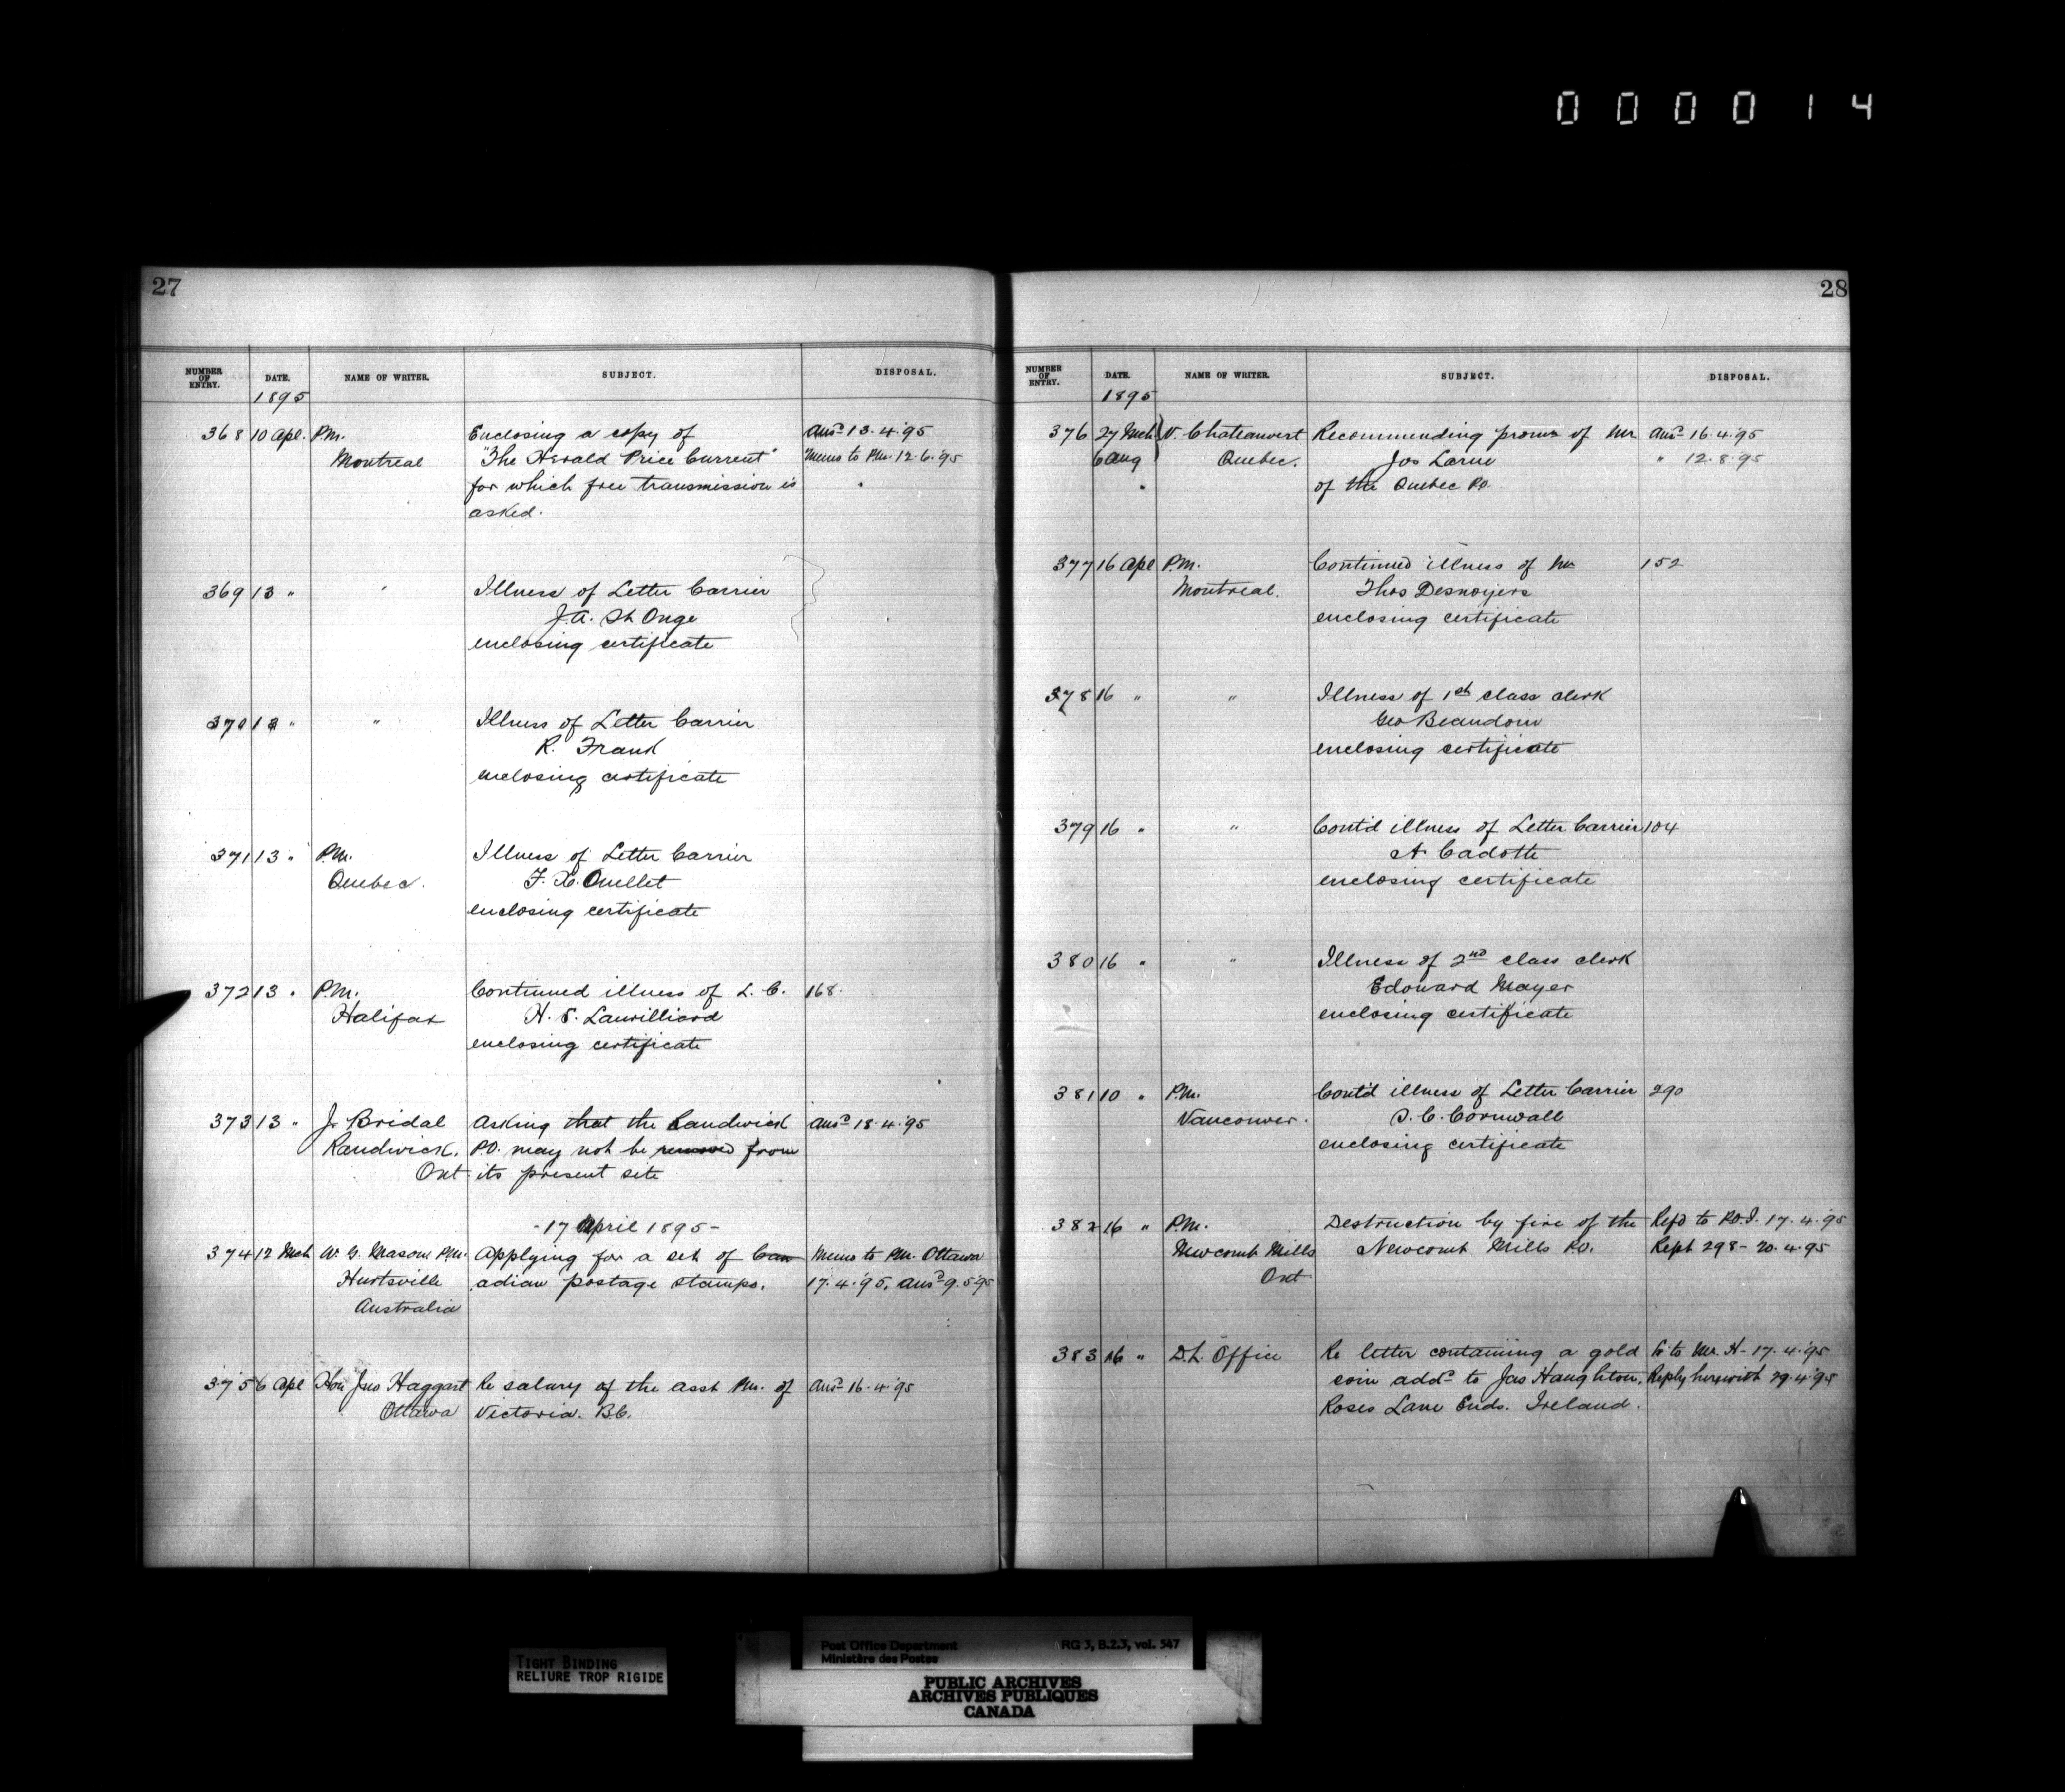 000014
27
NUMBER OF ENTRY. DATE. NAME OF WRITER. SUBJECT. DISPOSAL.
1895
368 10 Apl. P.M. Enclosing a copy of Ansd 13.4.'95
Montreal "The Herald Price Current" Memo to PM. 12.6.'95
for which free transmission is
asked.
369 13 " " Illness of Letter Carrier
J.A. St Onge
enclosing certificate
370 13 " " Illness of Letter Carrier
R. Frank
enclosing certificate
371 13 " P.M. Illness of Letter Carrier
Quebec. F. X. Ouellet
enclosing certificate
372 13 " P.M. Continued illness of L. C. 168.
Halifax H. S. Laurilliard
enclosing certificate
373 13 " J. Bridal Asking that the Randwick Ansd 18.4.'95
Randwick. P.O. may not be removed from
Ont. its present site
-17 April 1895-
374 12 Mch W. G. Mason P.M. Applying for a set of Can Memo to PM. Ottawa
Hurtsville adian postage stamps. 17.4.'95, Ansd 9.5.'95
Australia
375 6 Apl Hon Jno Haggart Re salary of the Asst PM. of Ansd 16.4.'95
Ottawa Victoria. B.C.
28
NUMBER OF ENTRY. DATE. NAME OF WRITER. SUBJECT. DISPOSAL.
1895
376 27 Mch V. Chateauvert Recommending promn of Mr Ansd 16.4.'95
6 Aug Quebec. Jos Larue " 12.8.'95
of the Quebec P.O.
377 16 Apl P.M. Continued illness of Mr 152
Montreal. Thos Desnoyers
enclosing certificate
378 16 " " Illness of 1st class clerk
Geo Beaudoin
enclosing certificate
379 16 " " Contd illness of Letter Carrier 104
A. Cadotte
enclosing certificate
380 16 " " Illness of 2nd class clerk
Edouard Mayer
enclosing certificate
381 10 " P.M. Contd illness of Letter Carrier 290
Vancouver. S. C. Cornwall
enclosing certificate
382 16 " P.M. Destruction by fire of the Refd to P.O.I. 17.4.'95
Newcomb Mills Newcomb Mills P.O. Rept 298 - 20.4.95
Ont
383 16 " D.L. Office Re letter containing a gold to Mr. H - 17.4.'95
coin addd to Jas Haughton, Reply herewith 29.4.'95
Roses Lane Ends. Ireland.
TIGHT BINDING
RELIURE TROP RIGIDE
Post Office Department RG 3, B.2.3, vol. 547
Ministère des Postes
PUBLIC ARCHIVES
ARCHIVES PUBLIQUES
CANADA